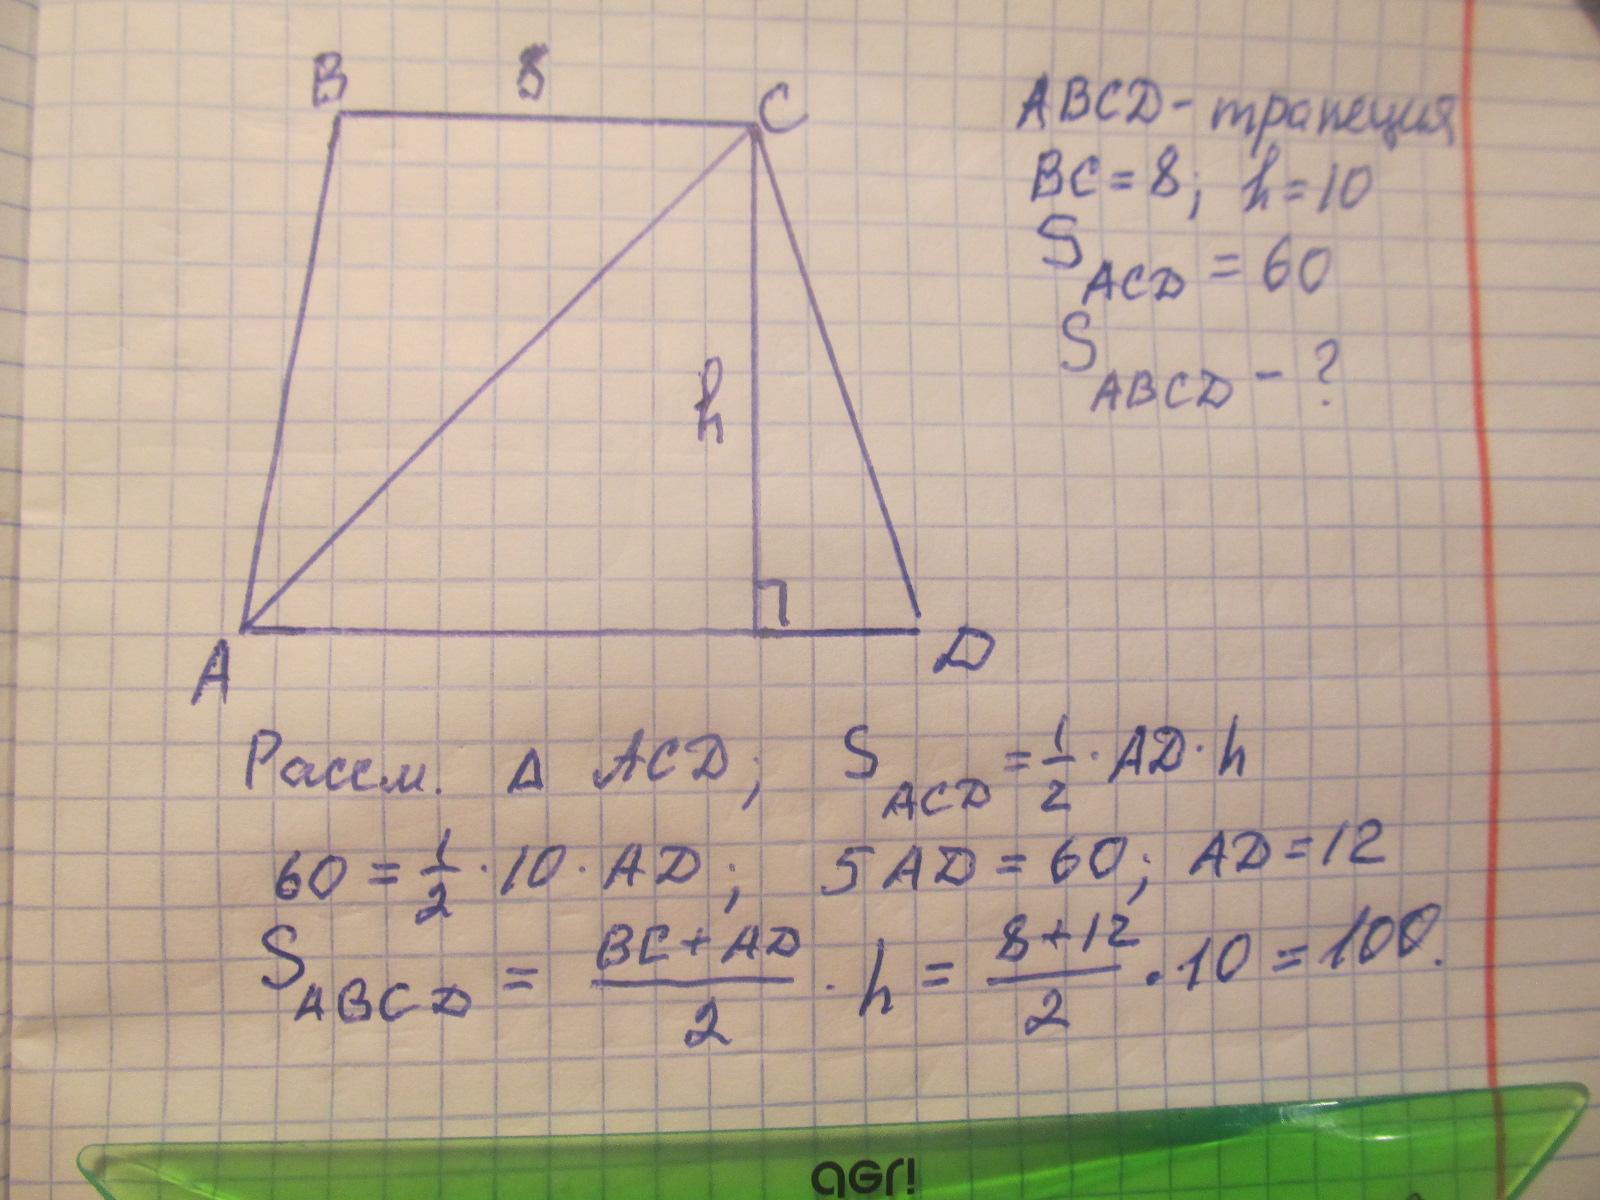 B 8 C
ABCD - трапеция
BC = 8; h = 10
S ACD = 60
S ABCD - ?
h
A D
Рассм. Δ ACD; S ACD = 1/2 · AD · h
60 = 1/2 · 10 · AD; 5AD = 60; AD = 12
S ABCD = (BC + AD)/2 · h = (8 + 12)/2 · 10 = 100.
agr!